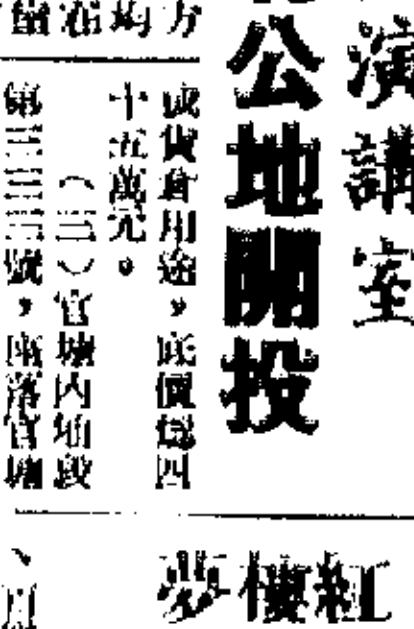 演講室
公地開投
方
均
在
或貨倉用途，底價爲四
十五萬元。
（三）官塘內地段
第三三三號，座落官塘
紅樓夢
、